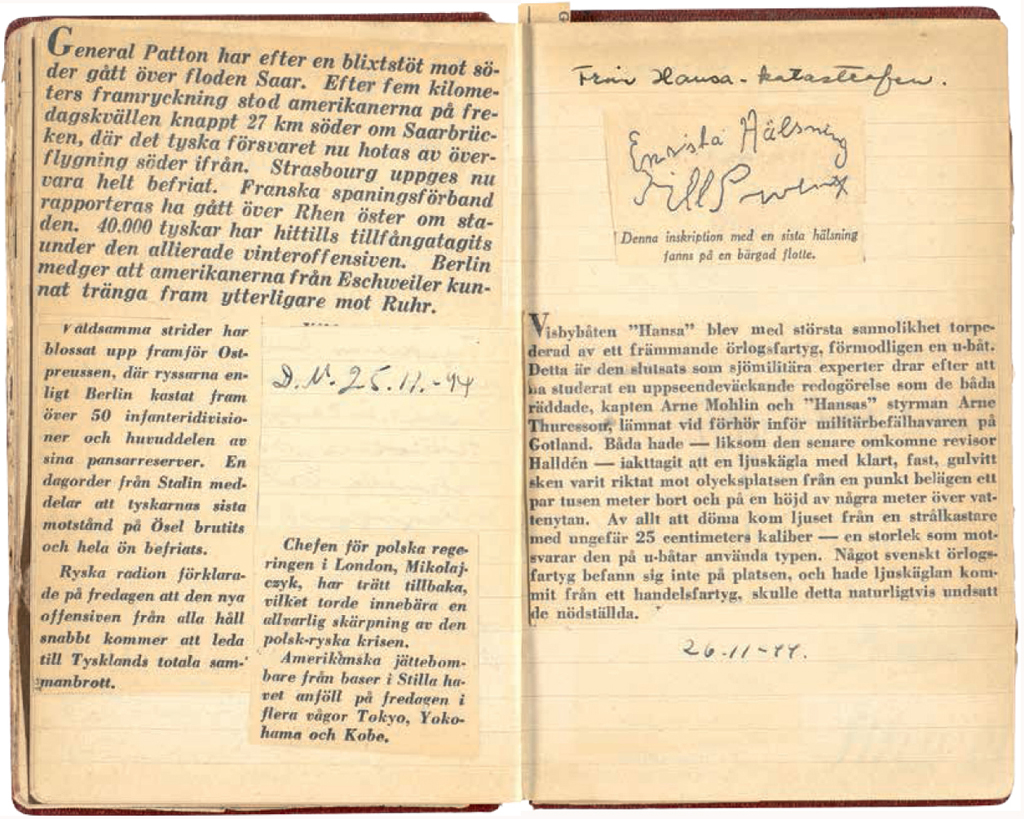 General Patton har efter en blixtstöt mot sö-
der gått över floden Saar. Efter fem kilome-
ters framryckning stod amerikanerna på fre-
dagskvällen knappt 27 km söder om Saarbrüc-
ken, där det tyska försvaret nu hotas av över-
flygning söder ifrån. Strasbourg uppges nu
vara helt befriat. Franska spaningsförband
rapporteras ha gått över Rhen öster om sta-
den. 40.000 tyskar har hittills tillfångatagits
under den allierade vinteroffensiven. Berlin
medger att amerikanerna från Eschweiler kun-
nat tränga fram ytterligare mot Ruhr.
Våldsamma strider har
blossat upp framför Ost-
preussen, där ryssarna en-
ligt Berlin kastat fram
över 50 infanteridivisio-
ner och huvuddelen av
sina pansarreserver. En
dagorder från Stalin med-
delar att tyskarnas sista
motstånd på Ösel brutits
och hela ön befriats.
Ryska radion förklara-
de på fredagen att den nya
offensiven från alla håll
snabbt kommer att leda
till Tysklands totala sam-
manbrott.
D.N. 25.11.-44
Chefen för polska rege-
ringen i London, Mikolaj-
czyk, har trätt tillbaka,
vilket torde innebära en
allvarlig skärpning av den
polsk-ryska krisen.
Amerikanska jättebom-
bare från baser i Stilla ha-
vet anföll på fredagen i
flera vågor Tokyo, Yoko-
hama och Kobe.
Från Hansa-katastrofen.
Hälsning
Till
Denna inskription med en sista hälsning
fanns på en bärgad flotte.
Visbybåten "Hansa" blev med största sannolikhet torpe-
derad av ett främmande örlogsfartyg, förmodligen en u-båt.
Detta är den slutsats som sjömilitära experter drar efter att
ha studerat en uppseendeväckande redogörelse som de båda
räddade, kapten Arne Mohlin och "Hansas" styrman Arne
Thuresson, lämnat vid förhör inför militärbefälhavaren på
Gotland. Båda hade — liksom den senare omkomne revisor
Halldén — iakttagit att en ljuskägla med klart, fast, gulvitt
sken varit riktat mot olycksplatsen från en punkt belägen ett
par tusen meter bort och på en höjd av några meter över vat-
tenytan. Av allt att döma kom ljuset från en strålkastare
med ungefär 25 centimeters kaliber — en storlek som mot-
svarar den på u-båtar använda typen. Något svenskt örlogs-
fartyg befann sig inte på platsen, och hade ljuskäglan kom-
mit från ett handelsfartyg, skulle detta naturligtvis undsatt
de nödställda.
26.-11-44.